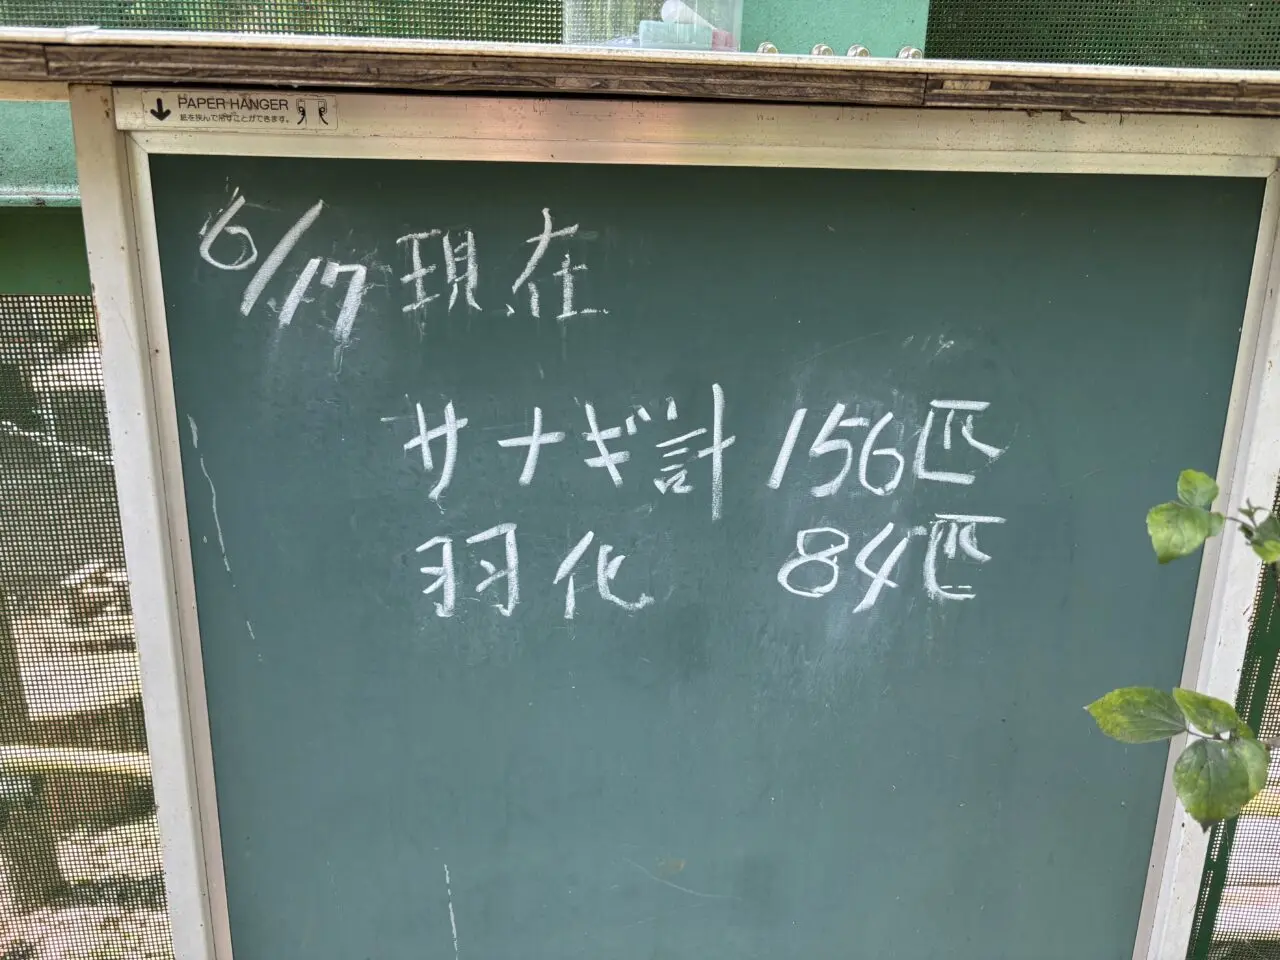 PAPER HANGER
紙を挟んで吊すことができます。
6/17 現在
サナギ計 156匹
羽化 84匹